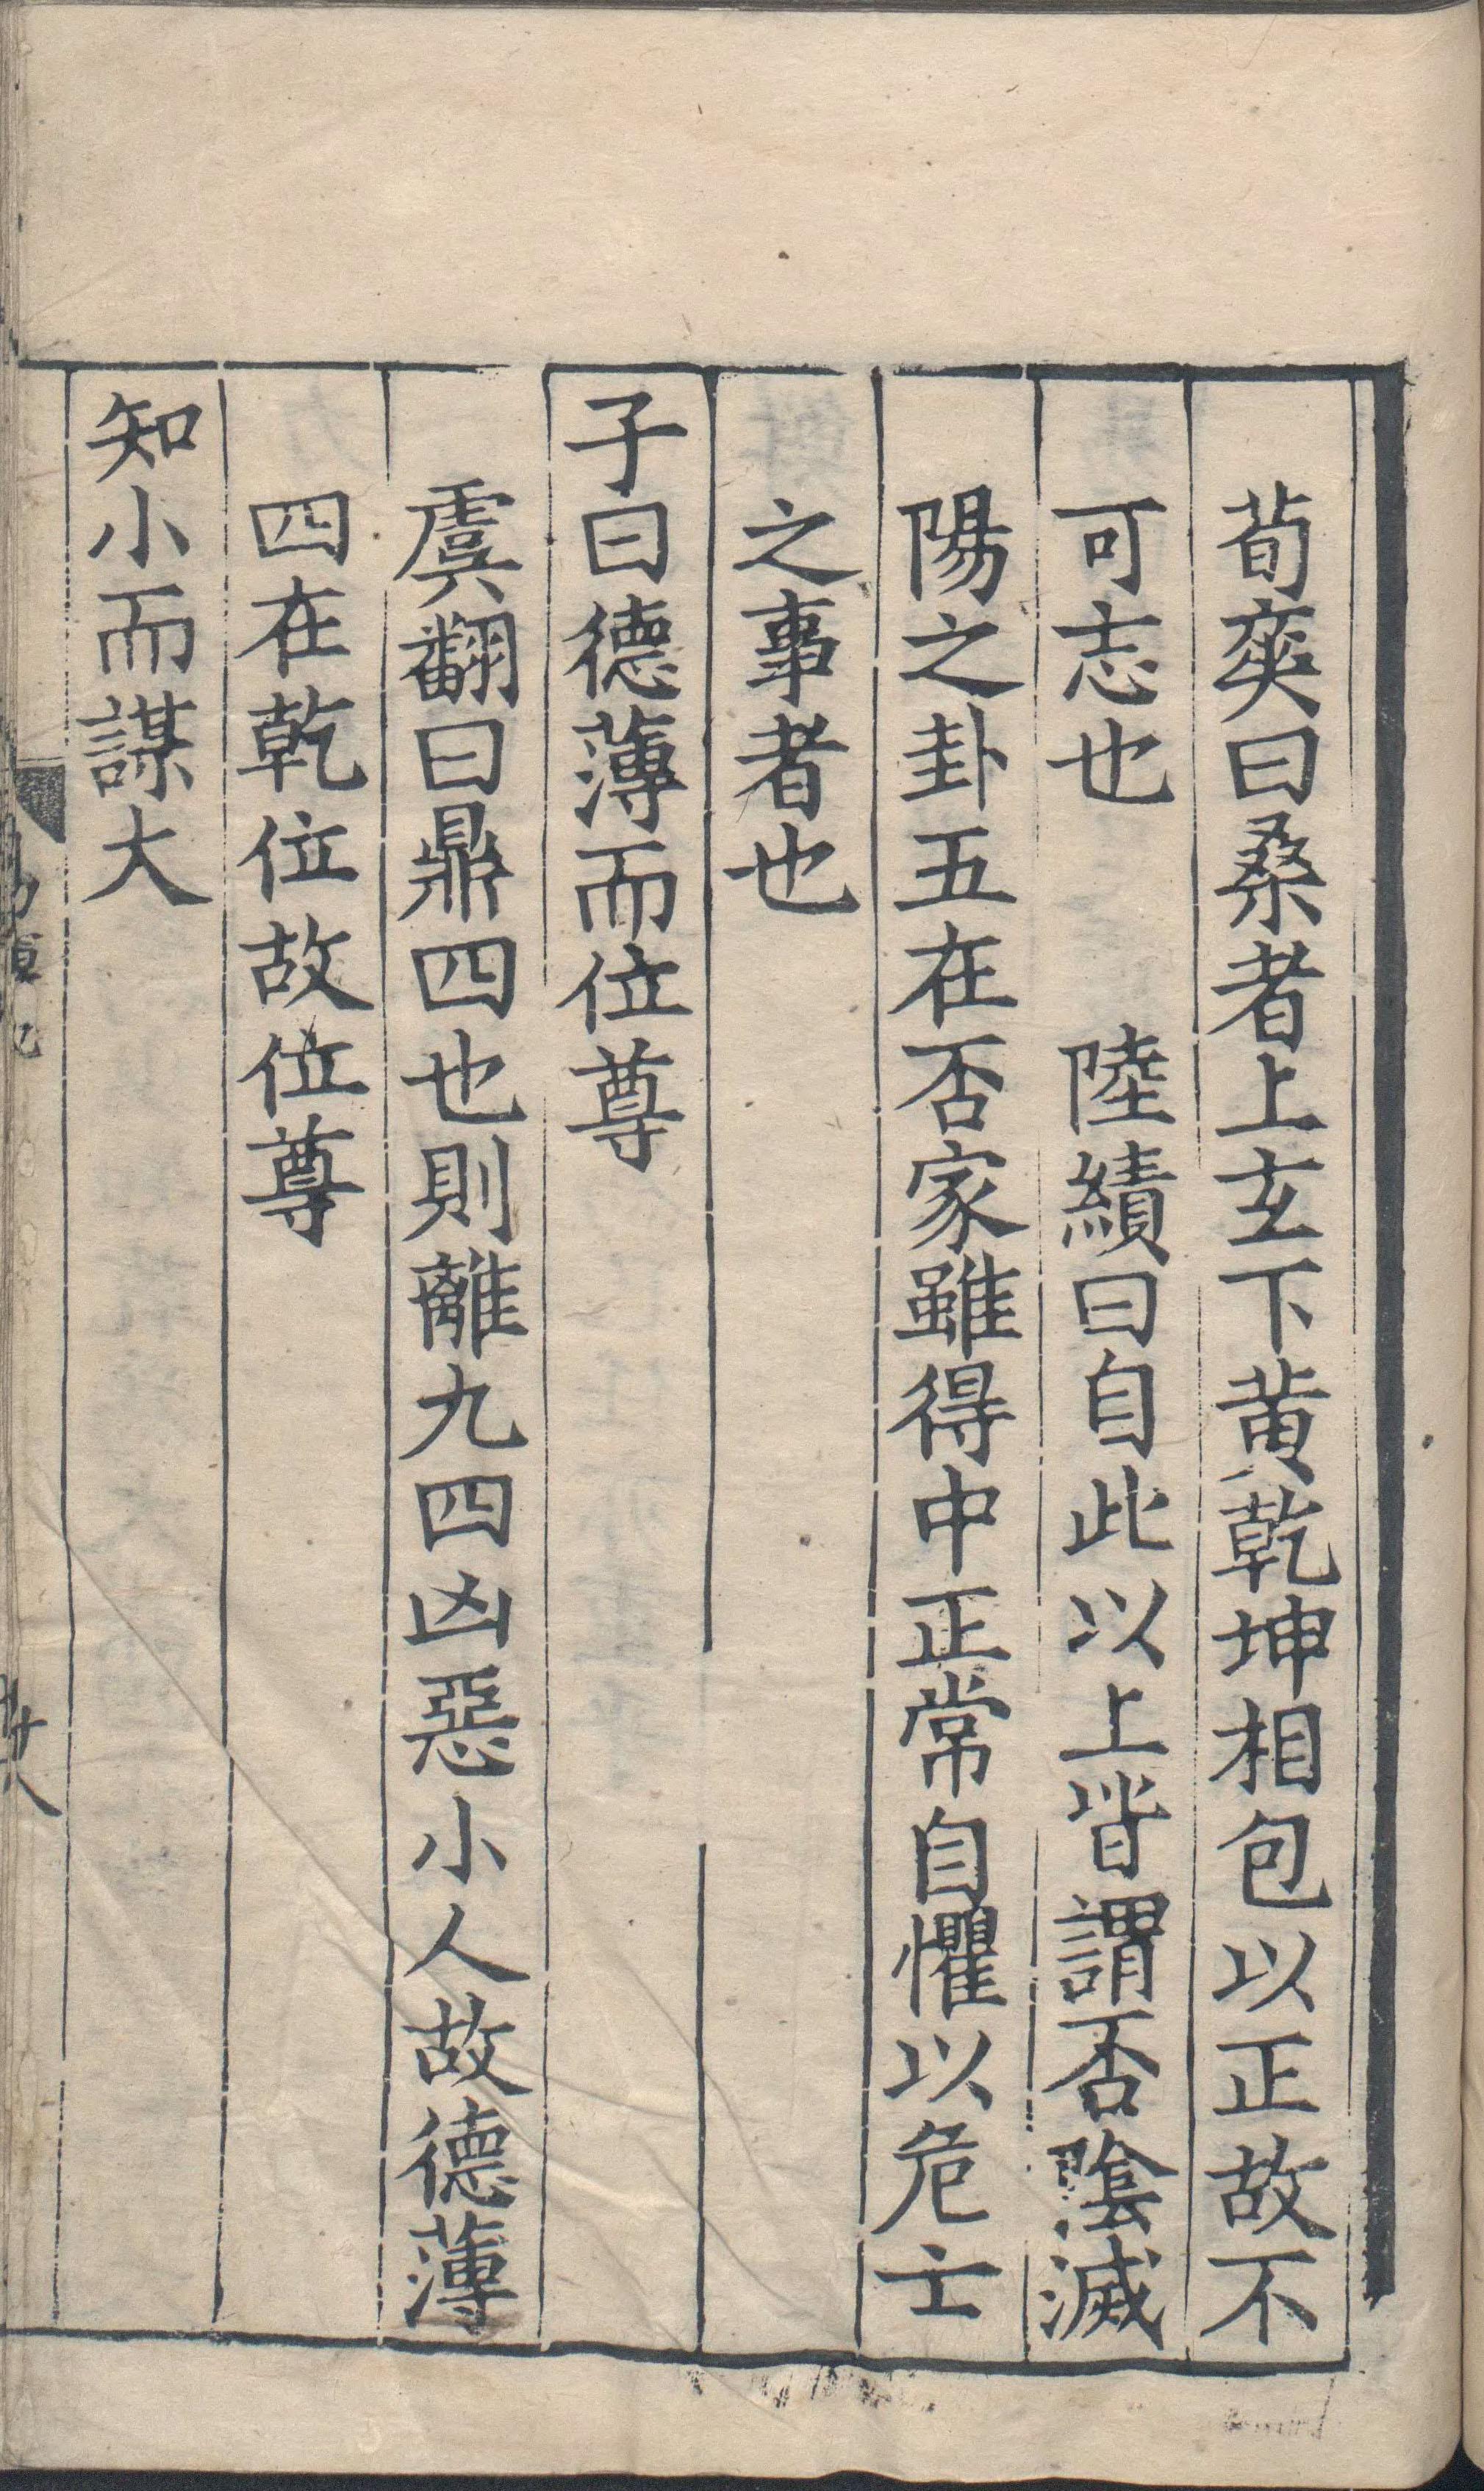 荀爽曰桑者上玄下黄乾坤相包以正故不
可志也　陸績曰自此以上皆謂否隂滅
陽之卦五在否家雖得中正常自懼以危亡
之事者也
子曰德薄而位尊
虞翻曰鼎四也則離九四凶惡小人故德薄
四在乾位故位尊
知小而謀大